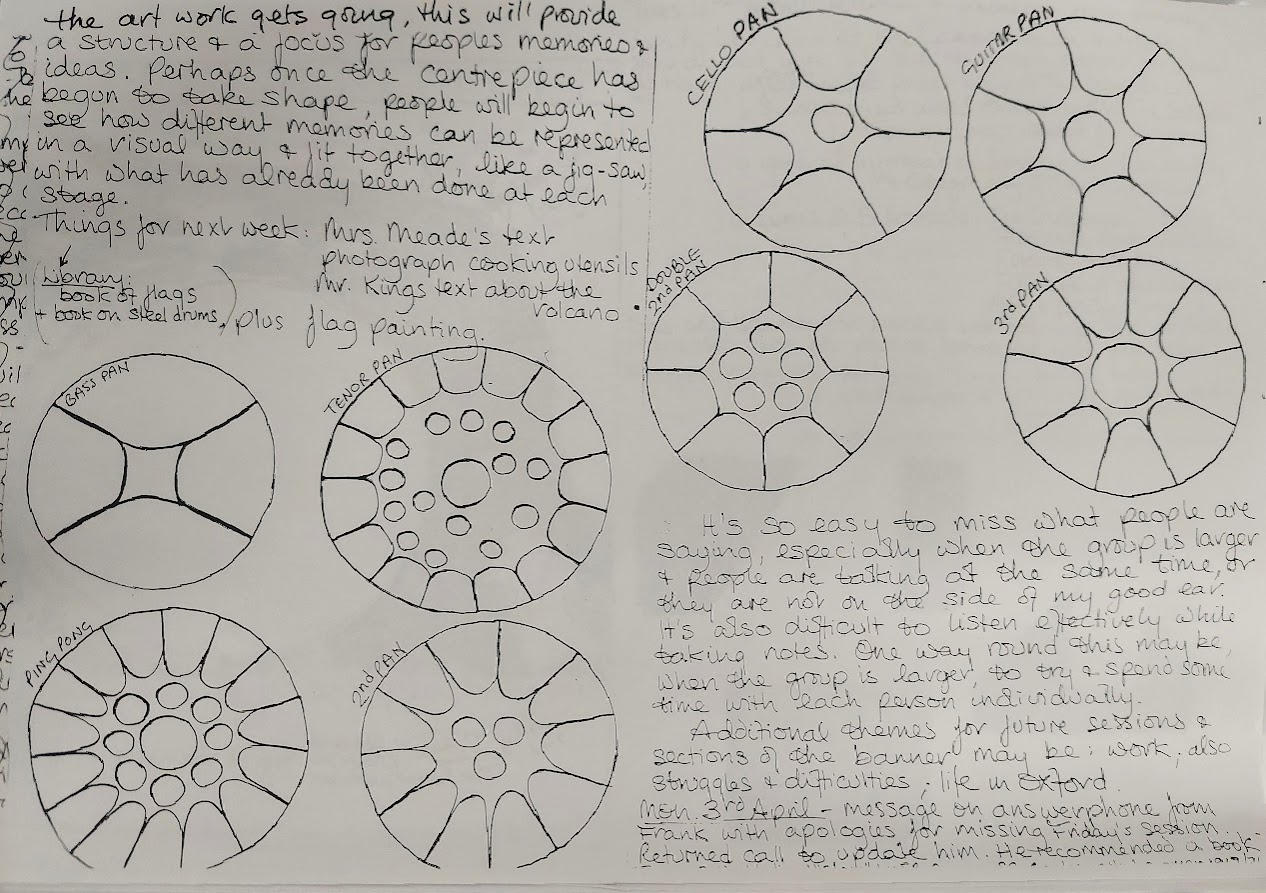 the art work gets going, this will provide
a structure & a focus for peoples memories &
ideas. Perhaps once the centrepiece has
begun to take shape, people will begin to
see how different memories can be represented
in a visual way & fit together, like a jig-saw,
with what has already been done at each
stage.
Things for next week: Mrs. Meade's text
photograph cooking utensils
Mr. Kings text about the
volcano.
(Library:
book of flags
+ book on steel drums)
, plus flag painting.
BASS PAN
TENOR PAN
PING PONG
2nd PAN
CELLO PAN
GUITAR PAN
DOUBLE
2nd PAN
3rd PAN
It's so easy to miss what people are
saying, especially when the group is larger
& people are talking at the same time, or
they are not on the side of my good ear.
It's also difficult to listen effectively while
taking notes. One way round this may be,
when the group is larger, to try & spend some
time with each person individually.
Additional themes for future sessions &
sections of the banner may be: work, also
struggles & difficulties, life in Oxford.
Mon. 3rd April - message on answerphone from
Frank with apologies for missing Friday's session.
Returned call to update him. He recommended a book